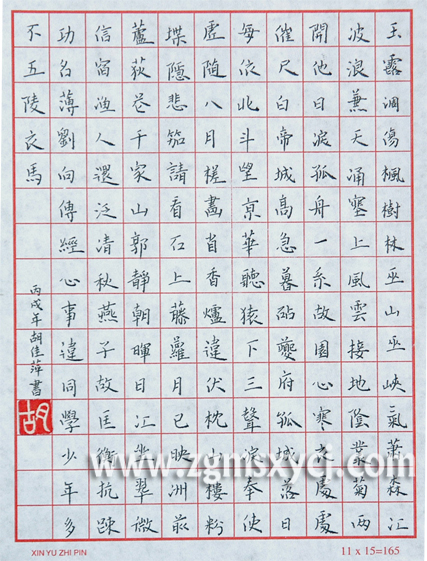 玉露凋傷楓樹林巫山巫峽氣蕭森江
波浪兼天涌塞上風雲接地陰叢菊兩
開他日淚孤舟一系故園心寒衣處處
催尺白帝城高急暮砧夔府孤城落日
每依北斗望京華聽猿下三聲淚奉使
虛隨八月槎畫省香爐違伏枕山樓粉
堞隱悲笳請看石上藤蘿月已映洲前
蘆荻花千家山郭靜朝暉日江坐翠微
信宿漁人還泛清秋燕子故匡衡抗疏
功名薄劉向傳經心事違同學少年多
不五陵衣馬
丙戌年胡佳萍書
胡
www.zgmsxycj.com
XIN YU ZHI PIN
11 x 15=165